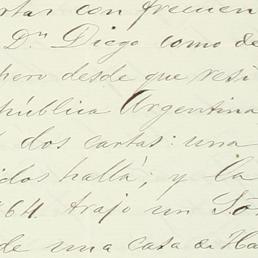 rtas con frecuen
Dn Diego como de
pero desde que resi
pública Argentina
dos cartas: una
idos hallá; y la
64 trajo un
de una casa de Ha